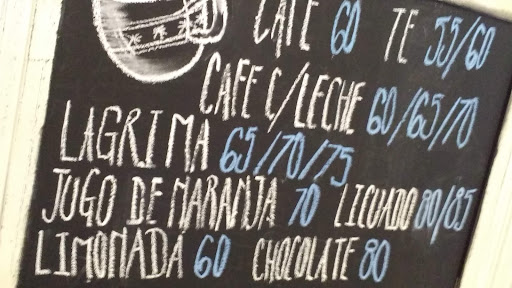 CAFE 60 TE 55/60
CAFE C/LECHE 60/65/70
LAGRIMA 65/70/75
JUGO DE NARANJA 70 LICUADO 80/85
LIMONADA 60 CHOCOLATE 80